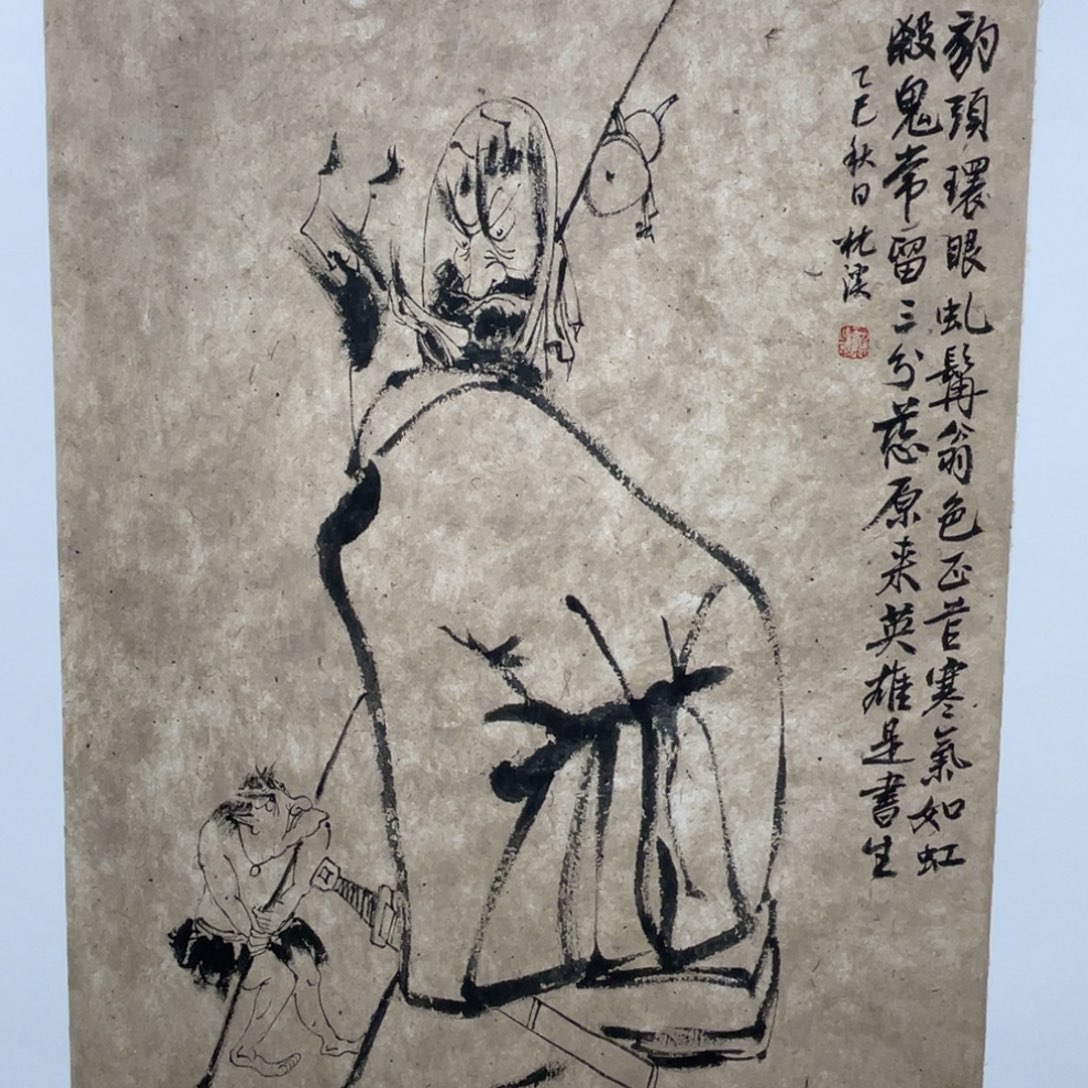 豹頭環眼虬髯翁色正芒寒氣如虹
殺鬼常留三分慈原来英雄是書生
乙巳秋日